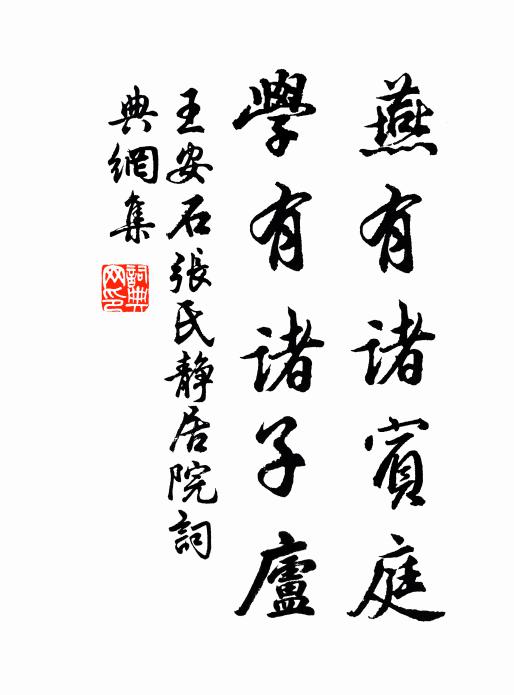 燕有諸賓庭
學有諸子廬
王安石張氏靜居院詞
典網集
詞典網印